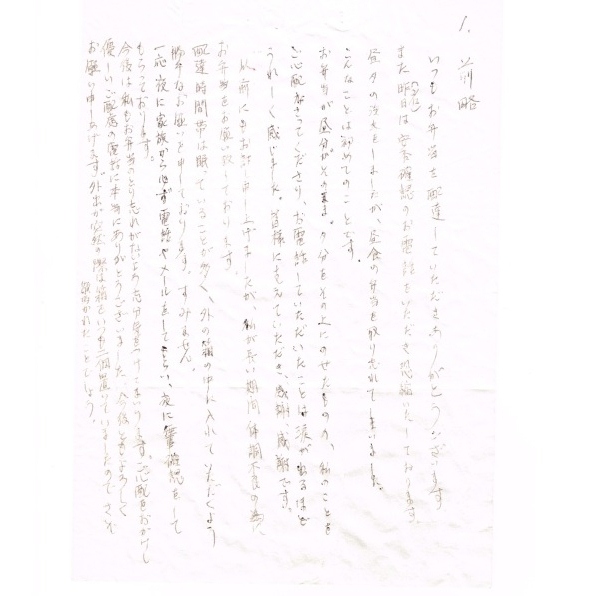 1. 前略
いつもお弁当を配達していただきありがとうございます
また昨日は安否確認のお電話をいただき恐縮いたしております
昼夕の注文をしましたが、昼食の弁当を取り忘れてしまいました。
こんなことは初めてのことです。
お弁当が昼分がそのまま。夕分をその上にのせたものの、私のことを
ご心配なさってくださり、お電話していただいたことは涙が出るほど
うれしく感じました。皆様に支えていただき、感謝、感謝です。
以前にもお話し申し上げましたが、私が長い期間体調不良の為、
お弁当をお願い致しております。
配達時間帯は眠っていることが多く、外の箱の中に入れていただくよう
お願いを申しております。すみません。
一応、夜に家族から必ず電話やメールをしてもらい、夜に無事確認をして
もらっております。
今後は私もお弁当のとり忘れがないよう充分気をつけてまいります。ご心配をおかけし
優しいご配慮の電話に本当にありがとうございました。今後ともよろしく
お願い申しあげます。外出が突然の際は箱をいつも二個置いていましたので さぞ
驚かれたことでしょう。